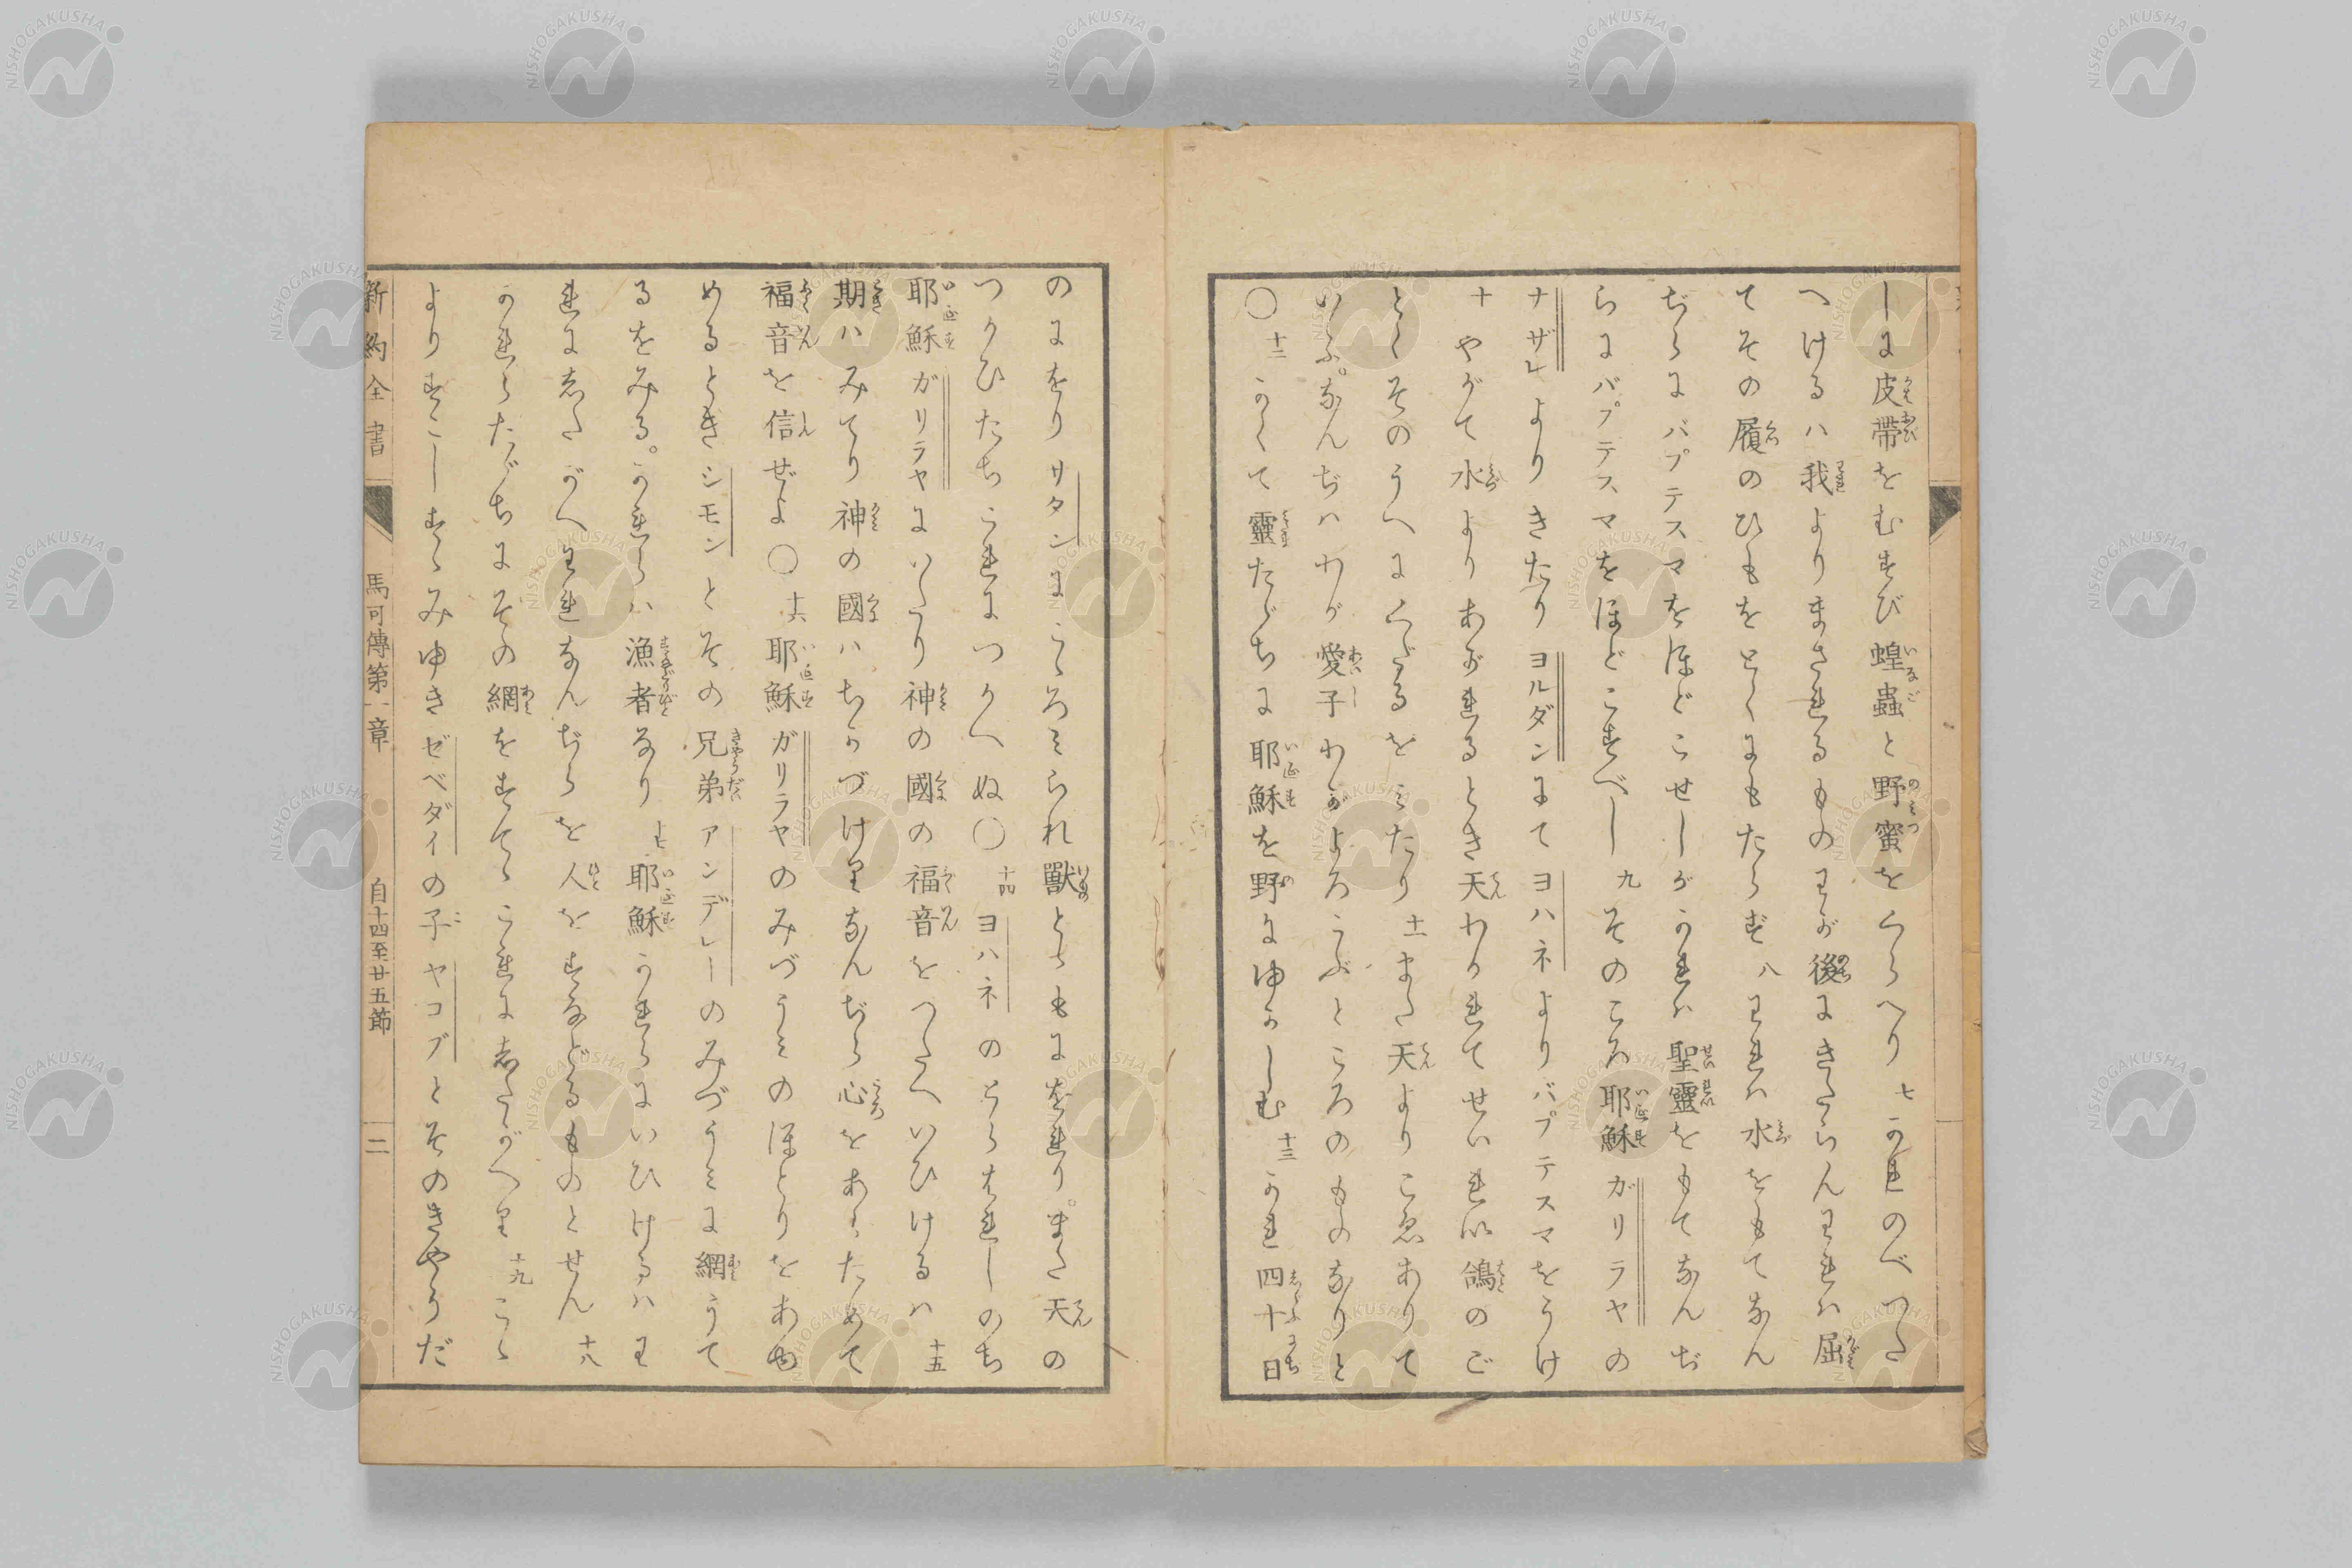 しに皮帶をむすび蝗蟲と野蜜をくらへり 七 かれのべつた
へけるハ我よりまされるものわが後にきたらんわれハ屈
てその履のひもをとくにもたらず 八 われハ水をもてなん
ぢらにバプテスマをほどこせしがかれハ聖靈をもてなんぢ
らにバプテスマをほどこすべし 九 そのころ耶穌ガリラヤの
ナザレよりきたりヨルダンにてヨハネよりバプテスマをうけ
十 やがて水よりあがれるとき天わかれてせいれい鴿のご
とくそのうへにくだるをミたり 十一 また天よりこゑありて
いふ。なんぢハわが愛子わがよろこぶところのものなりと
〇 十二 かくて靈たゞちに耶穌を野にゆかしむ 十三 かれ四十日
のにをりサタンにこゝろミられ獸とゝもにをれり。また天の
つかひたちこれにつかへぬ〇 十四 ヨハネのとらはれしのち
耶穌ガリラヤにいたり神の國の福音をつたへいひけるハ 十五
期ハみてり神の國ハちかづけりなんぢら心をあらためて
福音を信ぜよ〇 十六 耶穌ガリラヤのみづうミのほとりをあゆ
めるときシモンとその兄弟アンデレーのみづうミに網うて
るをみる。かれらハ漁者なり 十七 耶穌かれらにいひけるハわ
れにしたがへわれなんぢらを人をすなどるものとせん 十八
かれらたゞちにその網をすてゝこれにしたがへり 十九 こゝ
よりすこしすゝみゆきゼベダイの子ヤコブとそのきやうだ
新約全書 馬可傳第一章 自十四至廿五節 二
NISHOGAKUSHA